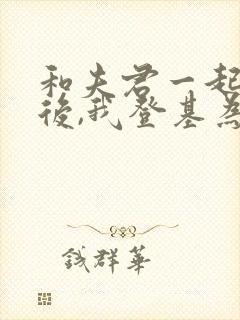 和夫君一起
後,我登基為
钱群華